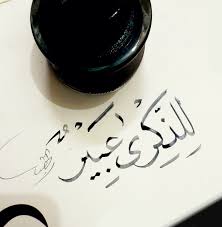 لِلذِّكْرَى عَبِيرٌ